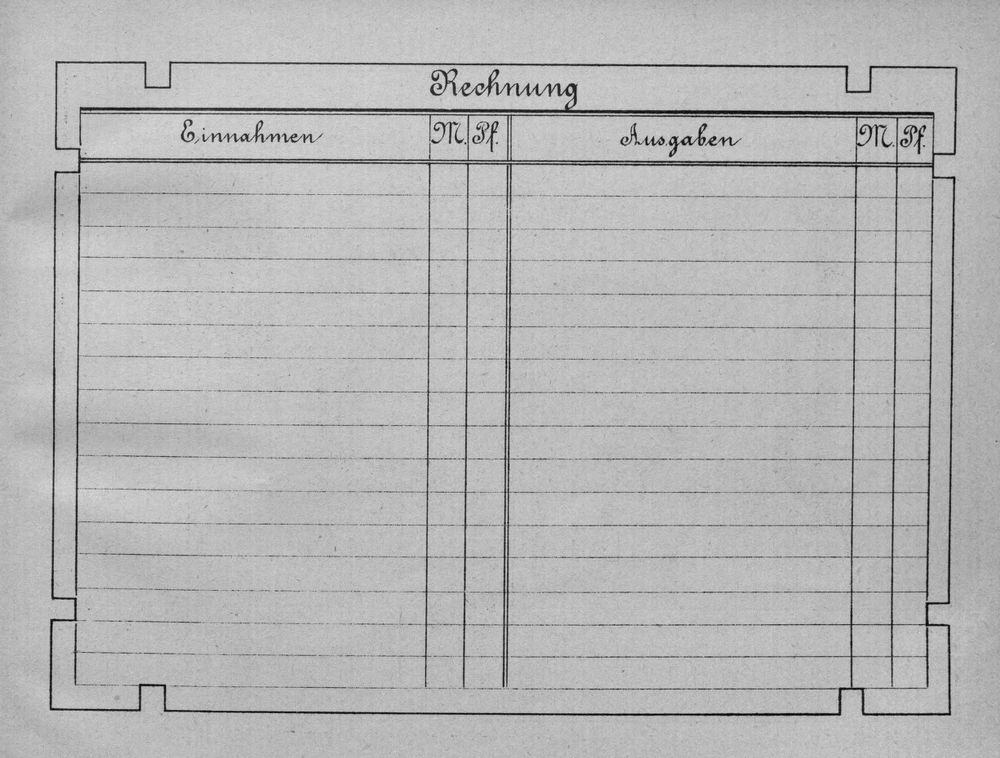 Rechnung
Einnahmen M. Pf. Ausgaben M. Pf.